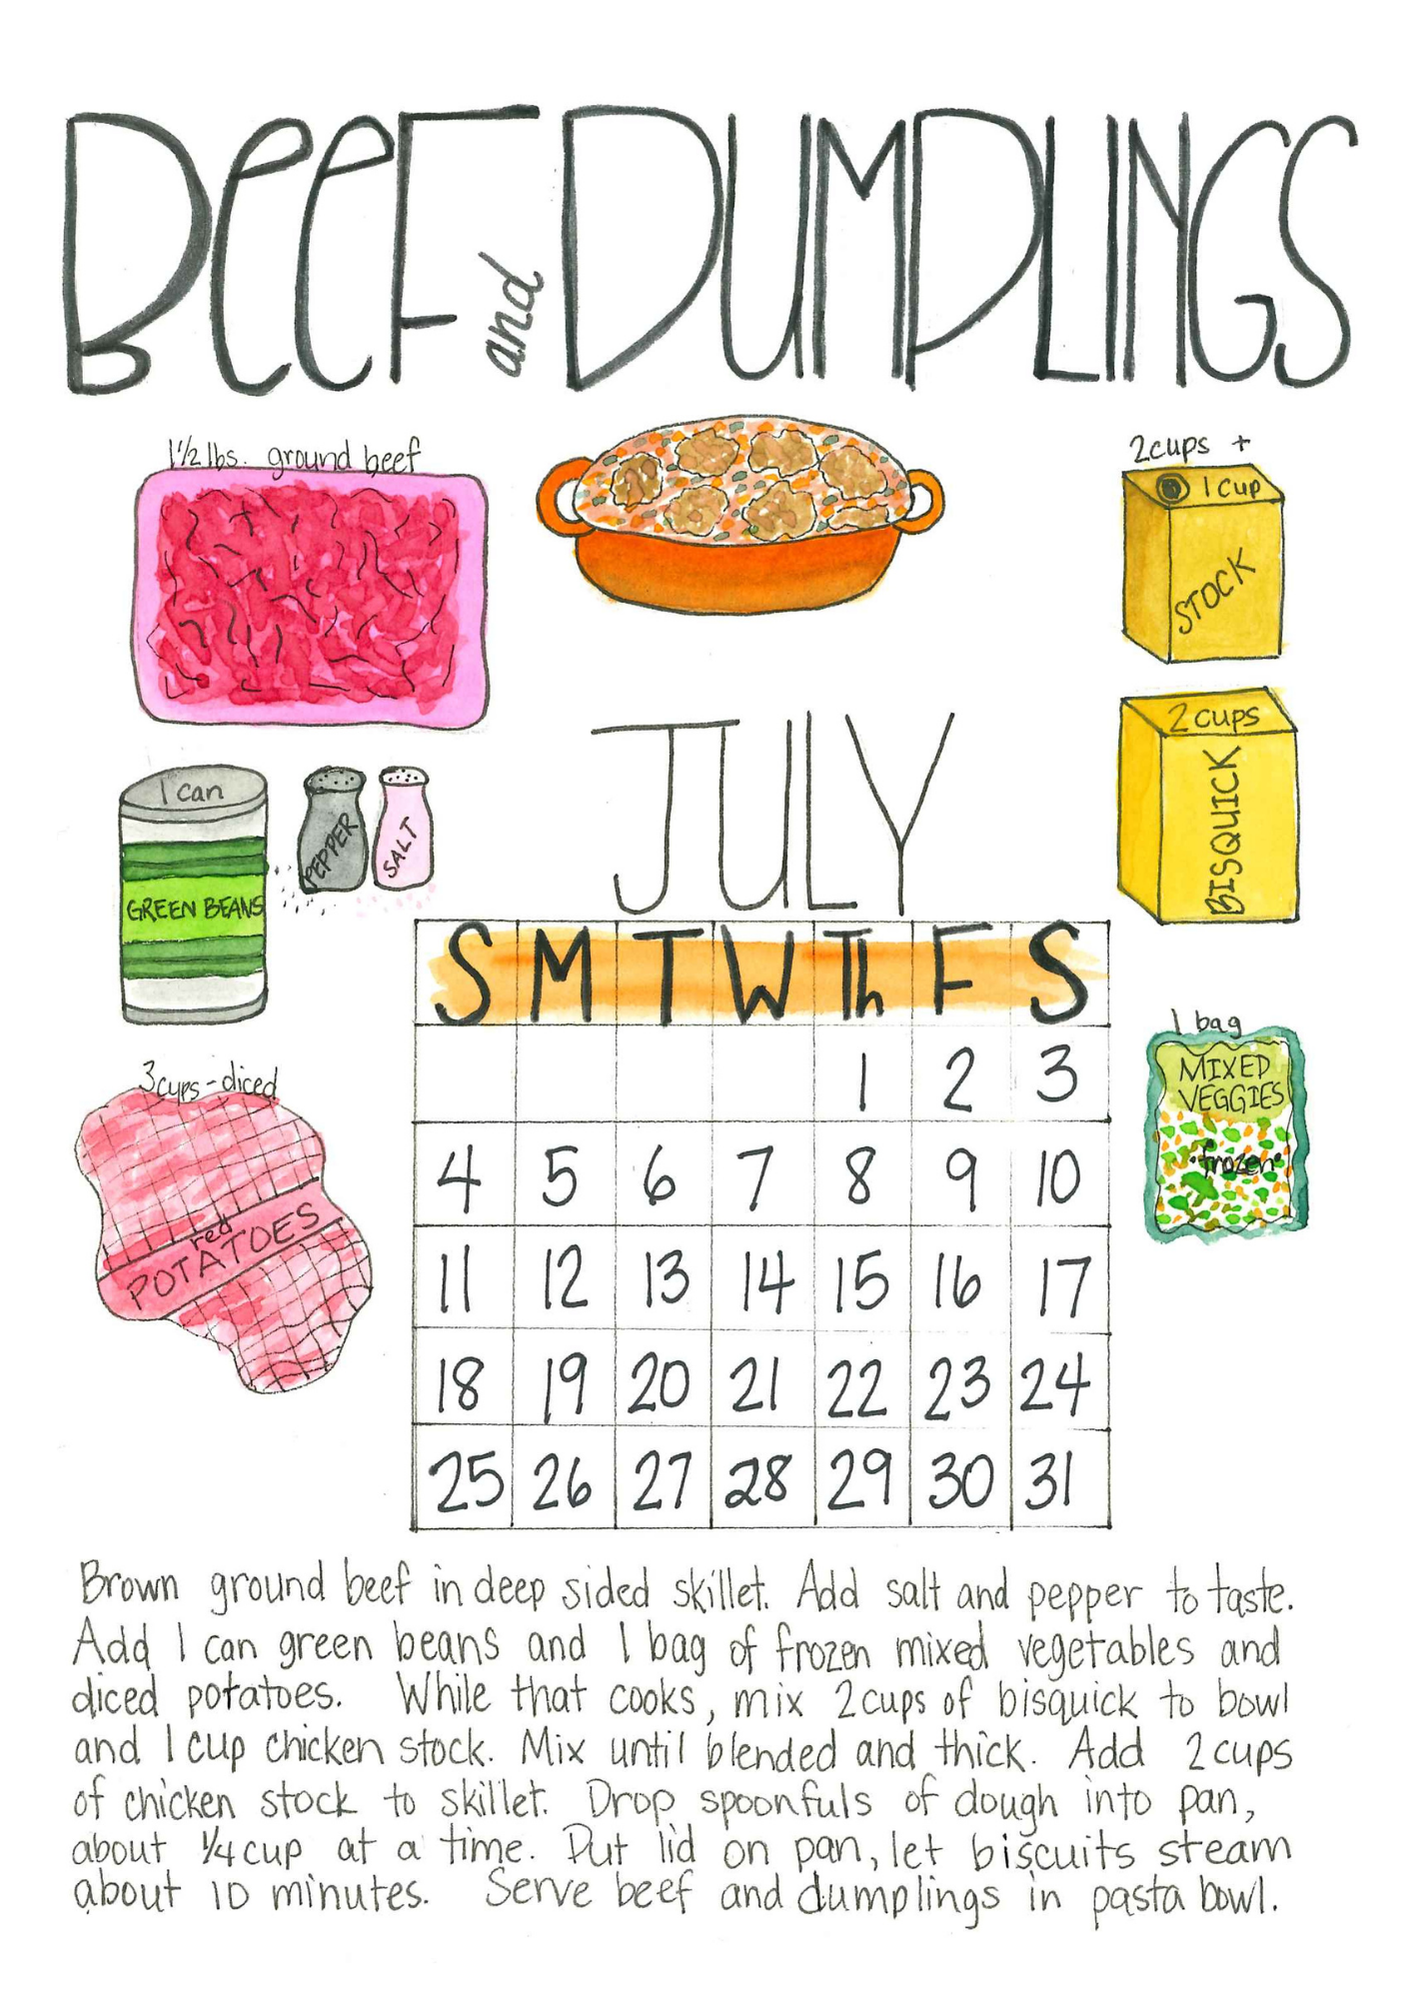 BEEF and DUMPLINGS
1 1/2 lbs. ground beef
2 cups +
1 cup
STOCK
2 cups
BISQUICK
1 can
GREEN BEANS
PEPPER
SALT
JULY
3 cups - diced
red
POTATOES
1 bag
MIXED
VEGGIES
•frozen•
S M T W Th F S
1 2 3
4 5 6 7 8 9 10
11 12 13 14 15 16 17
18 19 20 21 22 23 24
25 26 27 28 29 30 31
Brown ground beef in deep sided skillet. Add salt and pepper to taste.
Add 1 can green beans and 1 bag of frozen mixed vegetables and
diced potatoes. While that cooks, mix 2 cups of bisquick to bowl
and 1 cup chicken stock. Mix until blended and thick. Add 2 cups
of chicken stock to skillet. Drop spoonfuls of dough into pan,
about 1/4 cup at a time. Put lid on pan, let biscuits steam
about 10 minutes. Serve beef and dumplings in pasta bowl.